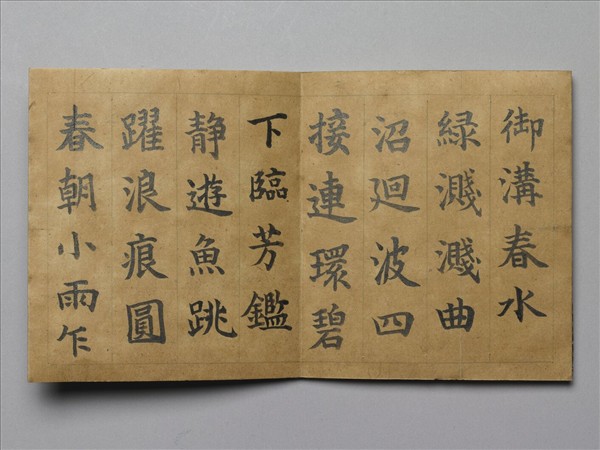 御溝春水
綠濺濺曲
沼廻波四
接連環碧
下臨芳鑑
静遊魚跳
躍浪痕圓
春朝小雨乍